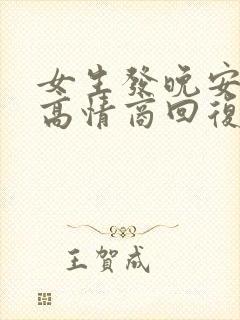 女生發晚安
高情商回復
王賀成